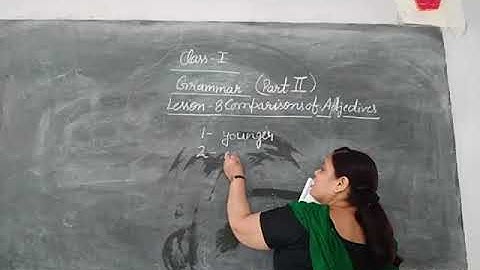 Class-I
Grammar-(Part II)
Lesson-8 Comparisons of Adjectives
1- younger
2-